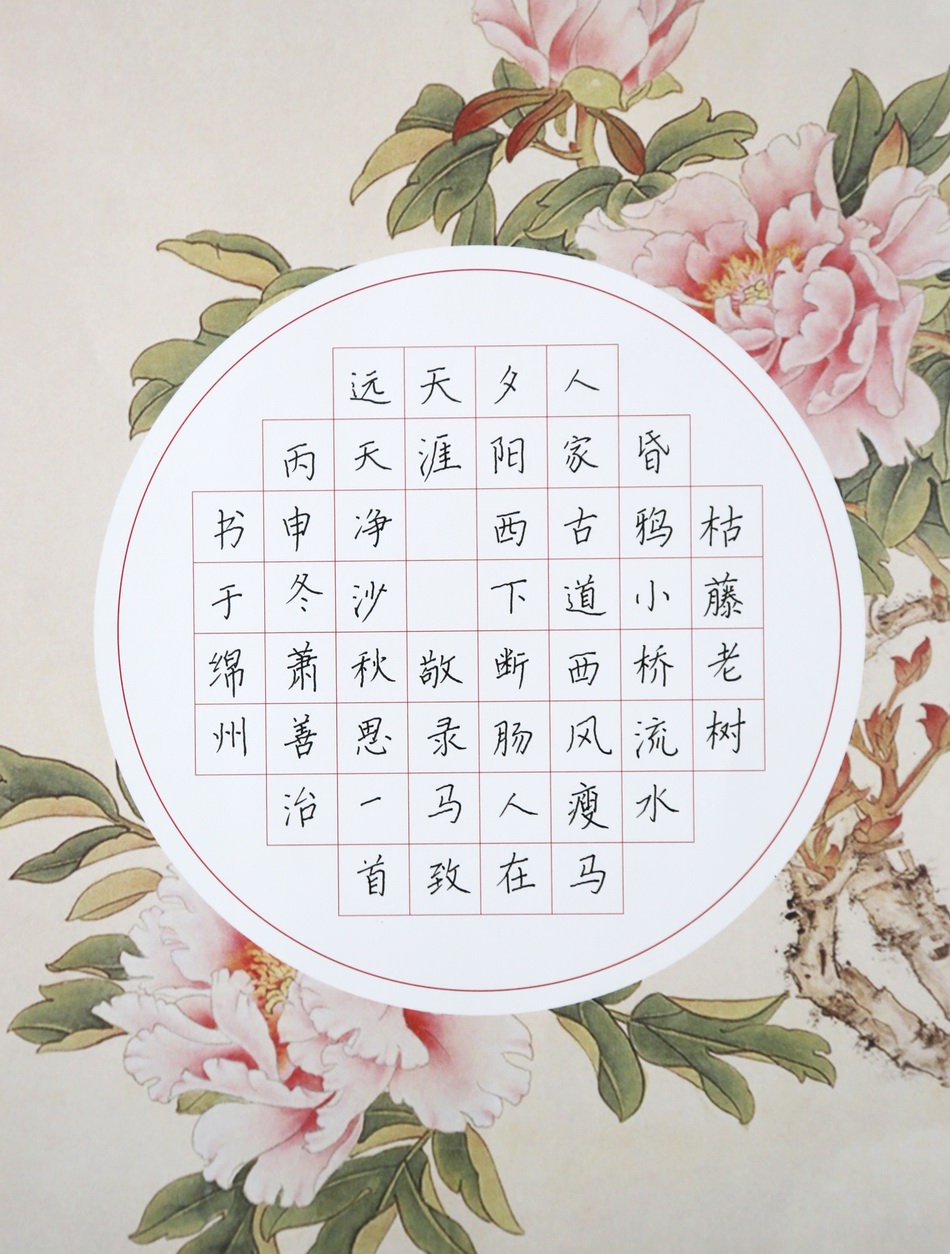 枯藤老树
昏鸦小桥流水
人家古道西风瘦马
夕阳西下断肠人在
天涯 敬录马致
远天净沙秋思一首
丙申冬萧善治
书于绵州